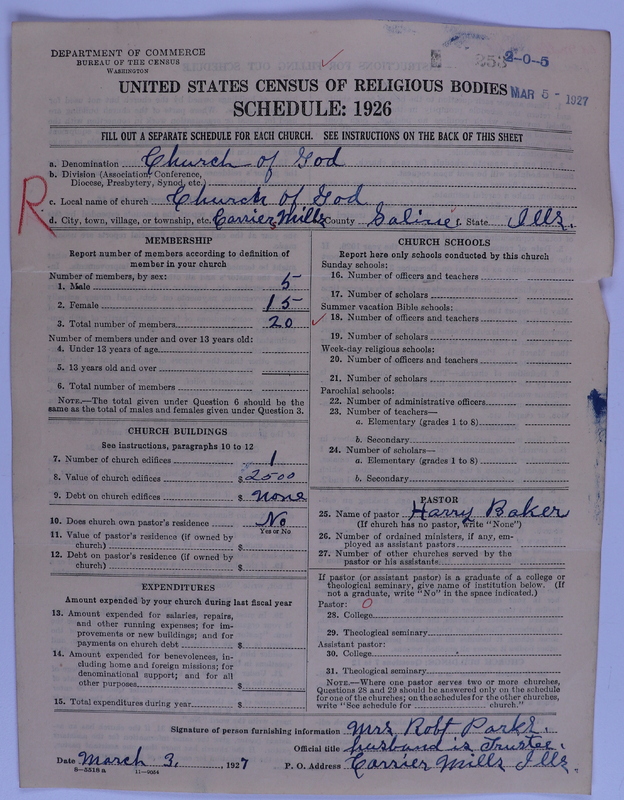 DEPARTMENT OF COMMERCE
BUREAU OF THE CENSUS
WASHINGTON
253 2-0-5
MAR 5 - 1927
UNITED STATES CENSUS OF RELIGIOUS BODIES
SCHEDULE: 1926
FILL OUT A SEPARATE SCHEDULE FOR EACH CHURCH. SEE INSTRUCTIONS ON THE BACK OF THIS SHEET
a. Denomination Church of God
b. Division (Association, Conference,
Diocese, Presbytery, Synod, etc.)
R
c. Local name of church Church of God
d. City, town, village, or township, etc. Carrier Mills County Saline f. State Ills.
MEMBERSHIP
Report number of members according to definition of
member in your church
Number of members, by sex:
1. Male 5
2. Female 15
3. Total number of members 20
Number of members under and over 13 years old:
4. Under 13 years of age
5. 13 years old and over
6. Total number of members
NOTE.—The total given under Question 6 should be the
same as the total of males and females given under Question 3.
CHURCH BUILDINGS
See instructions, paragraphs 10 to 12
7. Number of church edifices 1
8. Value of church edifices $ 2500
9. Debt on church edifices $ none
10. Does church own pastor's residence No
Yes or No
11. Value of pastor's residence (if owned by
church) $
12. Debt on pastor's residence (if owned by
church) $
EXPENDITURES
Amount expended by your church during last fiscal year
13. Amount expended for salaries, repairs,
and other running expenses; for im-
provements or new buildings; and for
payments on church debt $
14. Amount expended for benevolences, in-
cluding home and foreign missions; for
denominational support; and for all
other purposes $
15. Total expenditures during year $
CHURCH SCHOOLS
Report here only schools conducted by this church
Sunday schools:
16. Number of officers and teachers
17. Number of scholars
Summer vacation Bible schools:
18. Number of officers and teachers
19. Number of scholars
Week-day religious schools:
20. Number of officers and teachers
21. Number of scholars
Parochial schools:
22. Number of administrative officers
23. Number of teachers—
a. Elementary (grades 1 to 8)
b. Secondary
24. Number of scholars—
a. Elementary (grades 1 to 8)
b. Secondary
PASTOR
25. Name of pastor Harry Baker
(If church has no pastor, write "None")
26. Number of ordained ministers, if any, em-
ployed as assistant pastors
27. Number of other churches served by the
pastor or his assistants
If pastor (or assistant pastor) is a graduate of a college or
theological seminary, give name of institution below. (If
not a graduate, write "No" in the space indicated.)
Pastor: 0
28. College
29. Theological seminary
Assistant pastor:
30. College
31. Theological seminary
NOTE.—Where one pastor serves two or more churches,
Questions 28 and 29 should be answered only on the schedule
for one of the churches; on the schedules for the other churches,
write "See schedule for church."
Signature of person furnishing information Mrs Robt Parks.
Official title husband is Trustee.
Date March 3, 1927 P. O. Address Carrier Mills Ills.
8—5518 a 11—9054